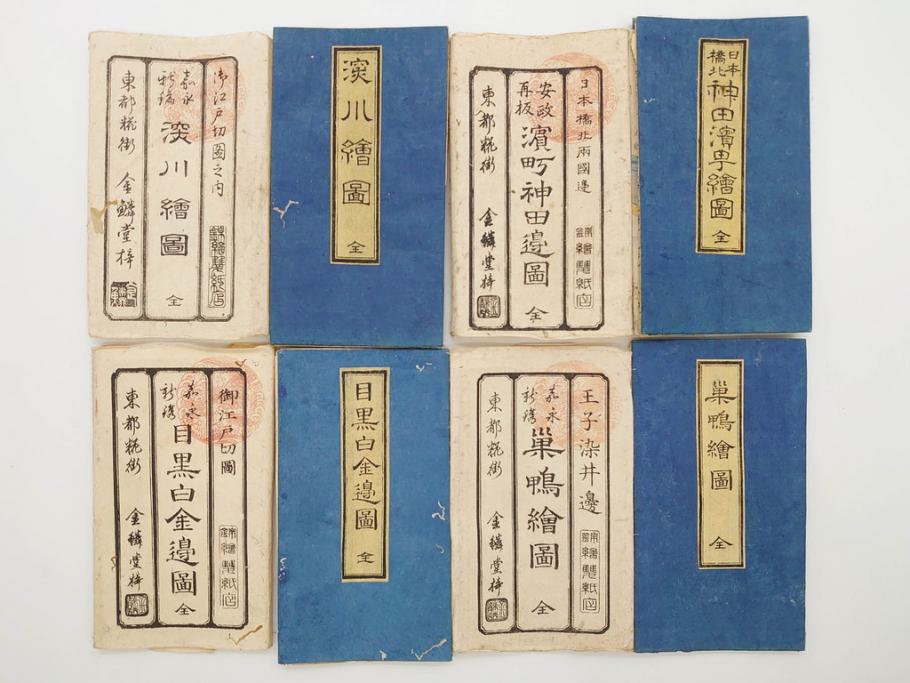 御江戸切圖之内
嘉永
新鐫
深川繪圖 全
東都糀街 金鱗堂梓
深川繪圖 全
日本橋北兩國邊
安政
再板
濱町神田邊圖 全
東都糀街 金鱗堂梓
日本
橋北
神田濱町繪圖 全
御江戸切圖
嘉永
新鐫
目黒白金邊圖 全
東都糀街 金鱗堂梓
目黒白金邊圖 全
王子染井邊
嘉永
新鐫
巣鴨繪圖 全
東都糀街 金鱗堂梓
巣鴨繪圖 全